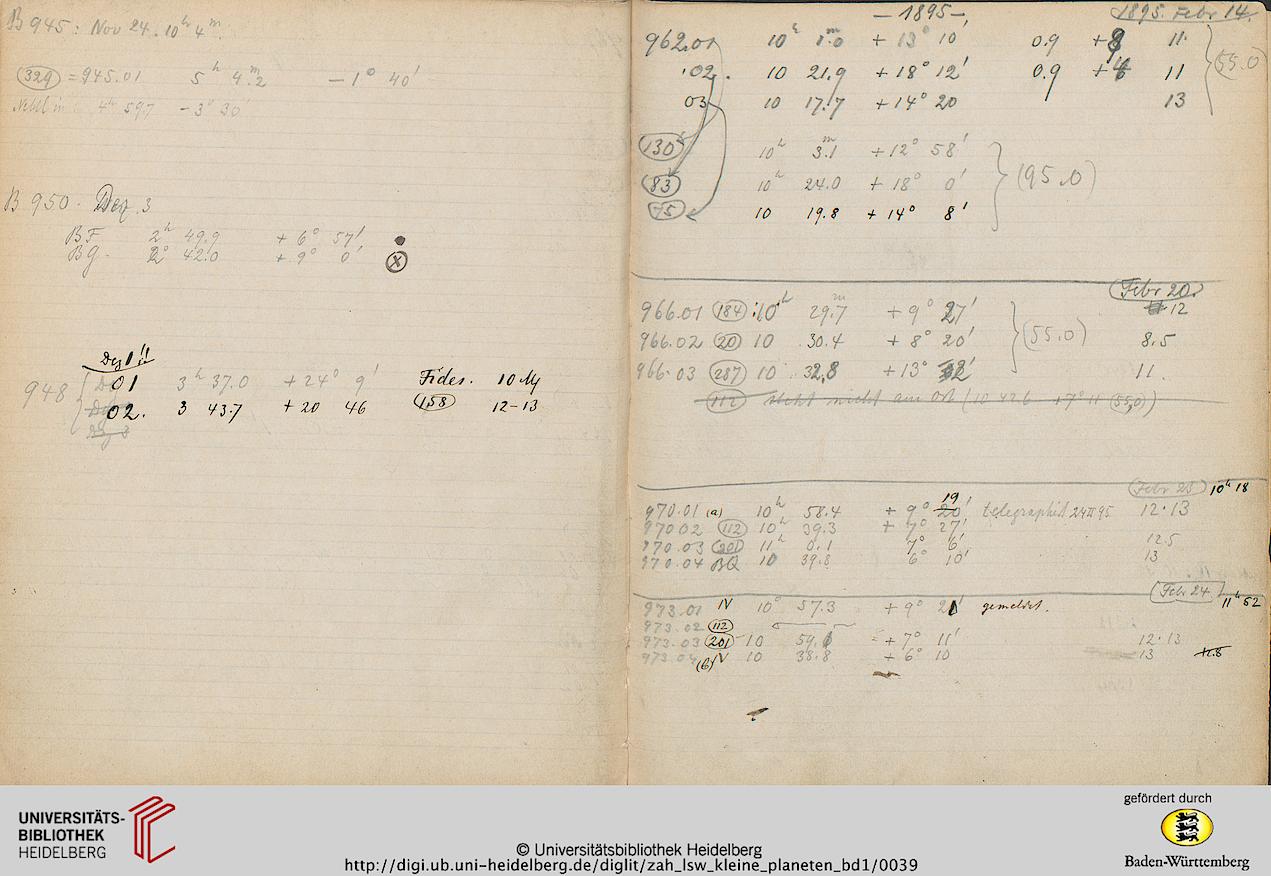 B 945: Nov 24. 10h 4m.
(329) = 945.01 5h 4m.2 — 1° 40'
4h 59.7 — 3° 30'
B 950. Dez 3
BF 2h 49.9 + 6° 57'
BG. 2 42.0 + 9° 0' ⊗
Dez 1!!
948 { 01 3h 37.0 + 24° 9' Fides. 10
02. 3 43.7 + 20 46 (158) 12-13
— 1895 —
1895. Febr 14.
962.01 10h 1m.0 + 13° 10' 0.9 + 8 11
.02. 10 21.9 + 18° 12' 0.9 + 4 11 } (55.0)
03 10 17.7 + 14° 20 13
(130) 10h 3m.1 + 12° 58'
(83) 10h 24.0 + 18° 0' } (95.0)
(75) 10 19.8 + 14° 8'
Febr 20.
966.01 (184) 10h 29m.7 + 9° 27' 12
966.02 (20) 10 30.4 + 8° 20' } (55.0) 8.5
966.03 (287) 10 32.8 + 13° 11.
(112) steht nicht am Ort (10 42 6 + 7° 11 (55,0))
Febr 23 10h 18
970.01 (a) 10h 58.4 + 9° 19' telegraphiert 24 II 95 12.13
970 02 (112) 10h 39.3 + 7° 27'
970.03 (201) 11h 0.1 7° 6' 12.5
970.04 BQ 10 39.8 6° 10' 13
Febr 24. 11h 52
973.01 IV 10° 57.3 + 9° gemeldet.
973.02 (112)
973.03 (201) 10 59.6 + 7° 11' 12.13
973.04 (b) IV 10 38.8 + 6° 10 13
UNIVERSITÄTS-
BIBLIOTHEK
HEIDELBERG
© Universitätsbibliothek Heidelberg
http://digi.ub.uni-heidelberg.de/diglit/zah_lsw_kleine_planeten_bd1/0039
gefördert durch
Baden-Württemberg